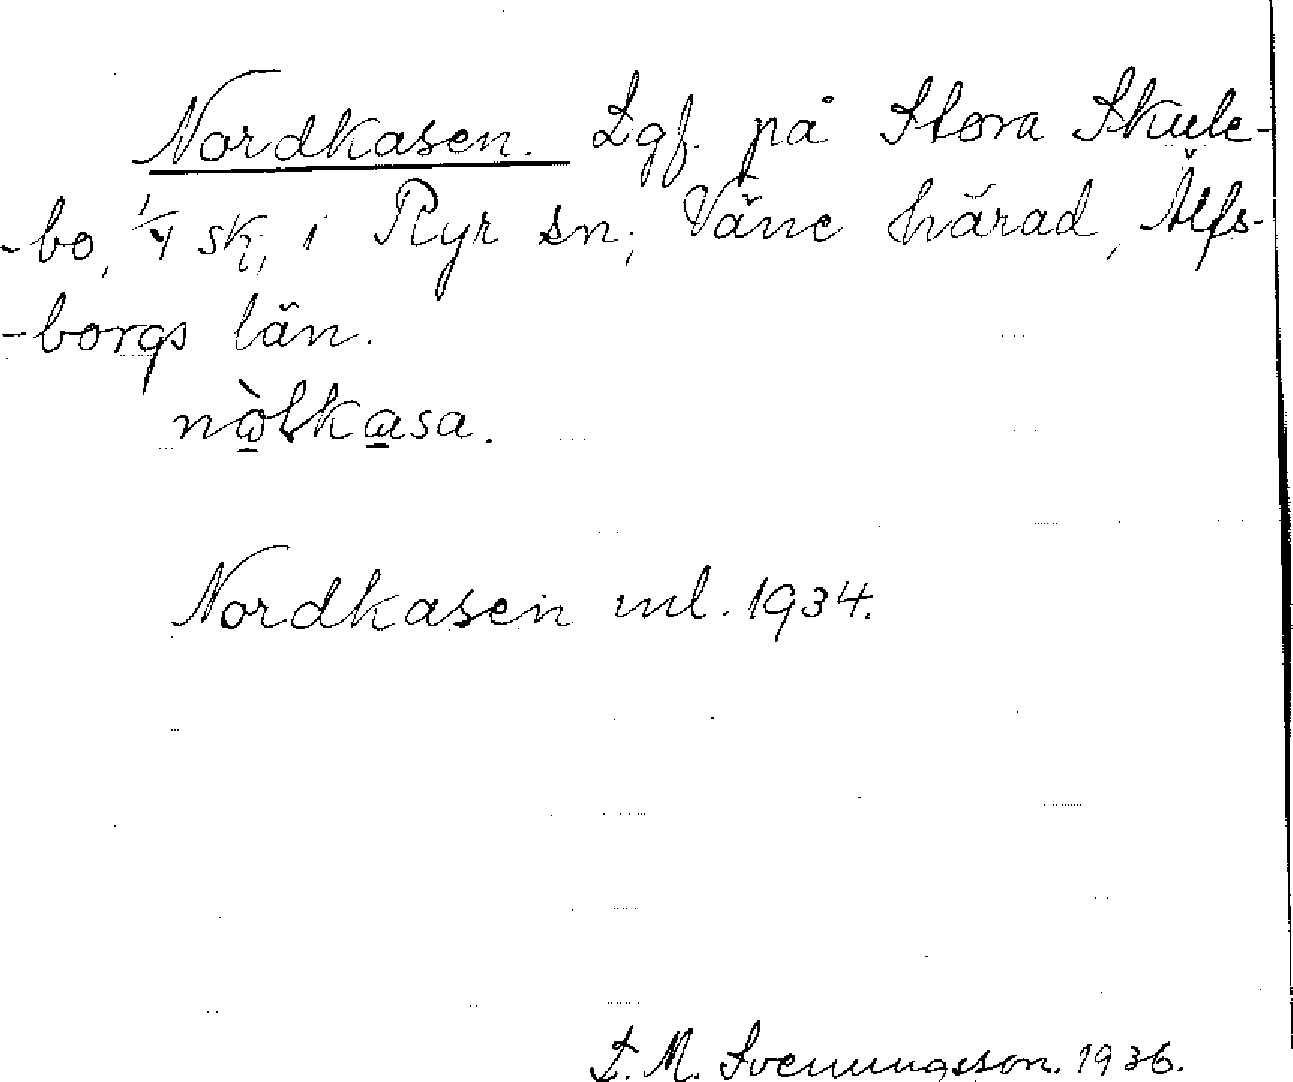 Nordkasen. Lgf. på Stora Skule-
-bo, 1/4 sk, i Ryr sn; Väne härad, Älfs-
-borgs län.
nò̱lka̱sa.
Nordkasen ml. 1934.
L. M. Svenungsson. 1936.